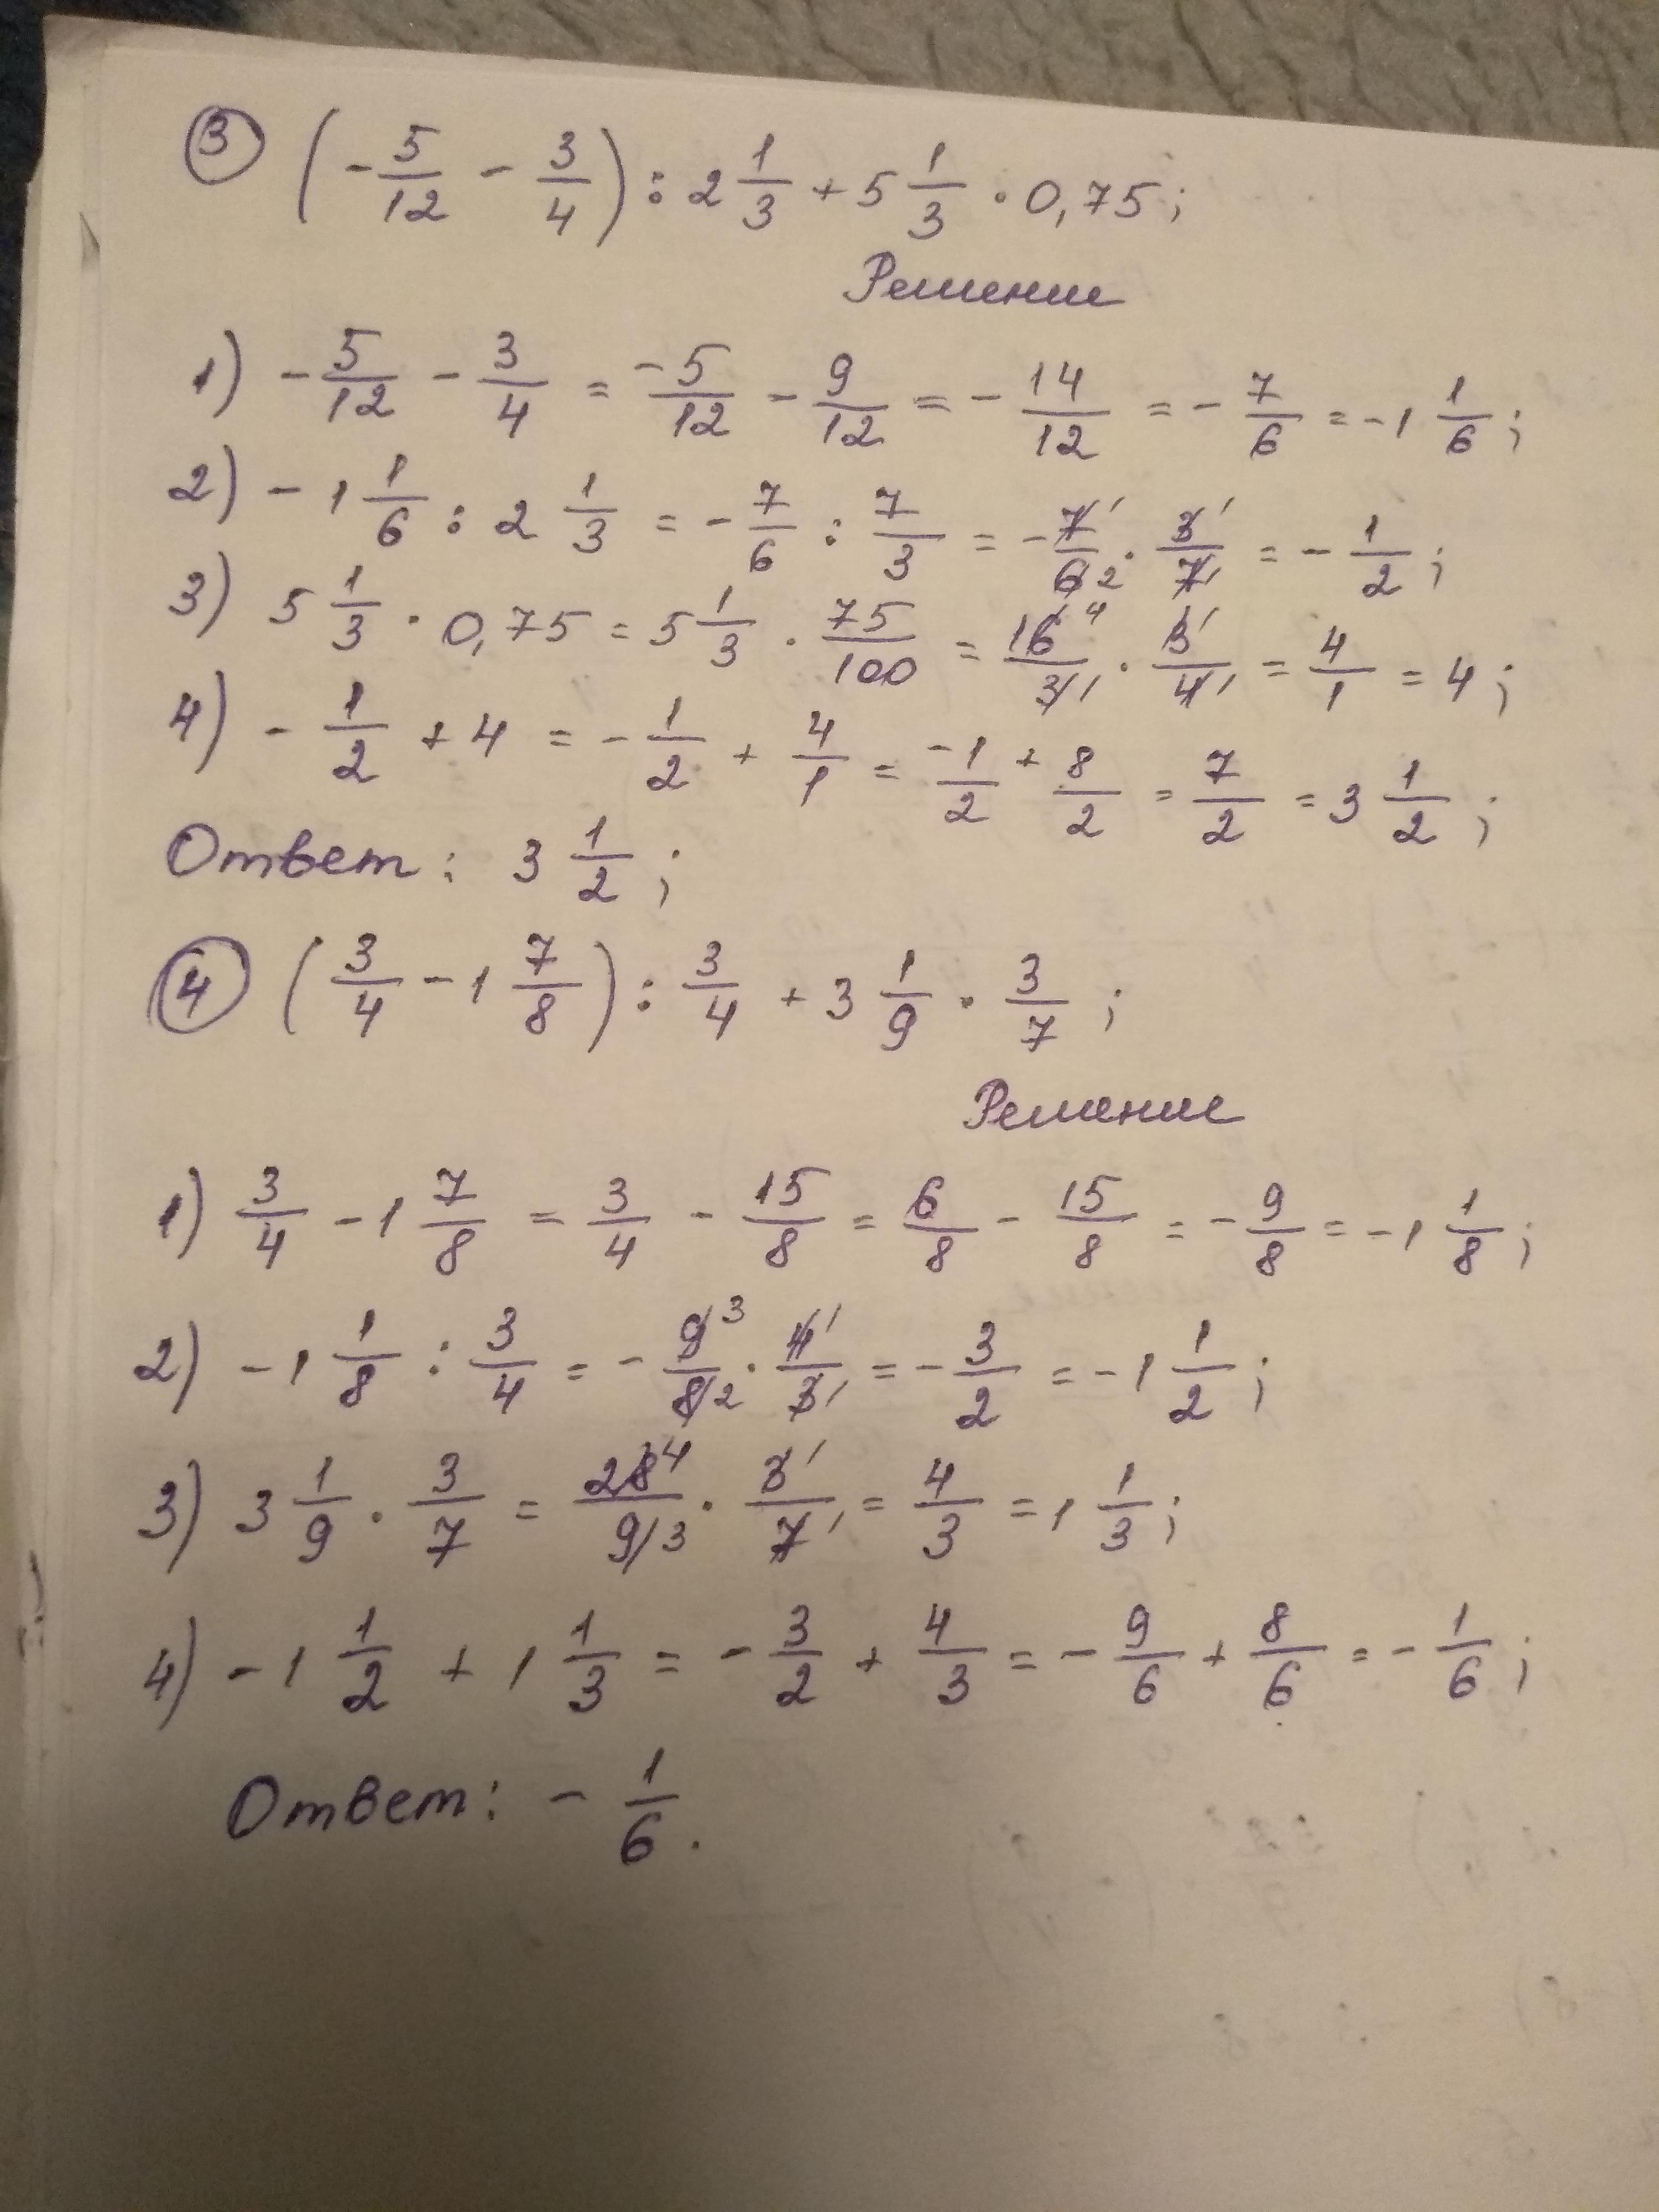 3 (-5/12 - 3/4) : 2 1/3 + 5 1/3 · 0,75;
Решение
1) -5/12 - 3/4 = -5/12 - 9/12 = -14/12 = -7/6 = -1 1/6;
2) -1 1/6 : 2 1/3 = -7/6 : 7/3 = -7 1/6 2 · 3 1/7 1 = -1/2;
3) 5 1/3 · 0,75 = 5 1/3 · 75/100 = 16 4/3 1 · 3 1/4 1 = 4/1 = 4;
4) -1/2 + 4 = -1/2 + 4/1 = -1/2 + 8/2 = 7/2 = 3 1/2;
Ответ: 3 1/2;
4 (3/4 - 1 7/8) : 3/4 + 3 1/9 · 3/7;
Решение
1) 3/4 - 1 7/8 = 3/4 - 15/8 = 6/8 - 15/8 = -9/8 = -1 1/8;
2) -1 1/8 : 3/4 = -9 3/8 2 · 4 1/3 1 = -3/2 = -1 1/2;
3) 3 1/9 · 3/7 = 28 4/9 3 · 3 1/7 1 = 4/3 = 1 1/3;
4) -1 1/2 + 1 1/3 = -3/2 + 4/3 = -9/6 + 8/6 = -1/6;
Ответ: -1/6.